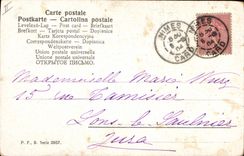 Carte postale
Postkarte — Cartolina postale
Levelező-Lap — Post card — Briefkaart
Brefkort — Tarjeta postal — Dopisnice
Karta Korrespondencyjna
Correspondenzkarte — Dopisnica
Weltpostverein
Union postale universelle
Unione postale universale
ОТКРЫТОЕ ПИСЬМО.
NIMES
GARD
NIMES
GARD
Mademoiselle Marie
15 rue Tamisier
Lons le Saulnier
Jura
P. F. B. Serie 2867.